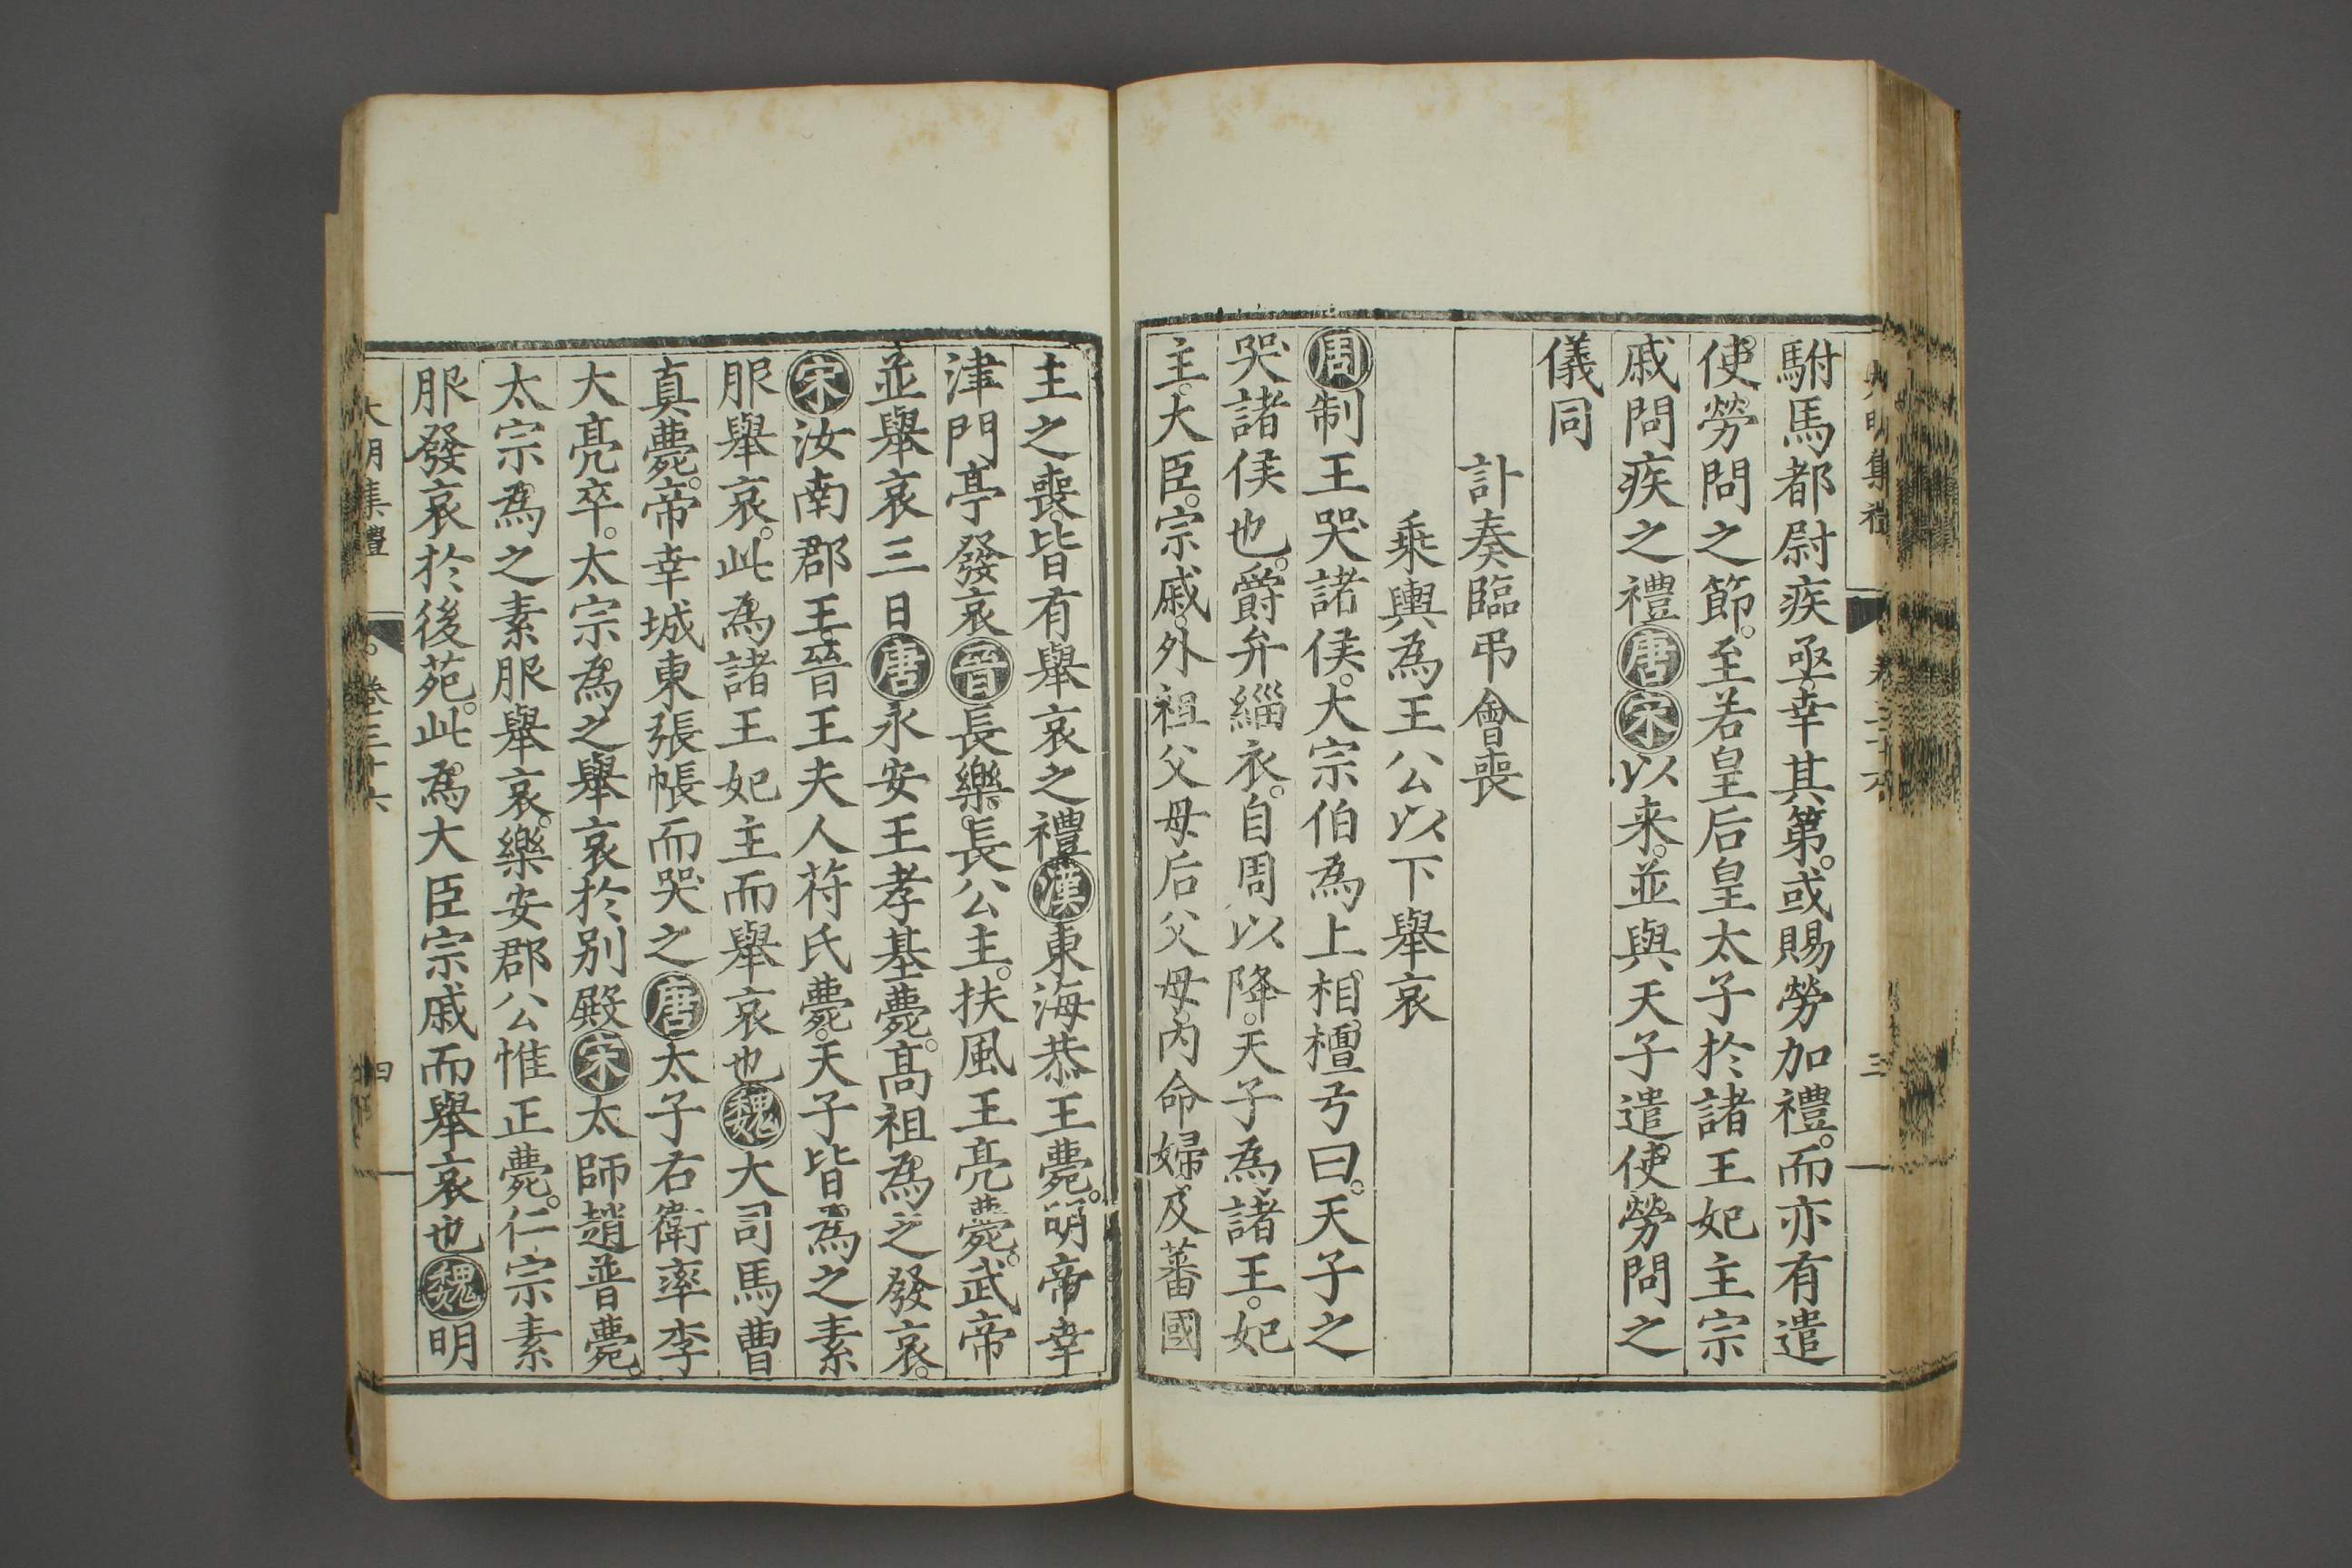 駙馬都尉疾亟幸其第。或賜勞加禮。而亦有遣
使勞問之節。至若皇后皇太子於諸王妃主宗
戚問疾之禮唐宋以来。並與天子遣使勞問之
儀同
訃奏臨弔會喪
乘輿為王公以下舉哀
周制王哭諸侯。大宗伯為上相。檀弓曰。天子之
哭諸侯也。爵弁緇衣。自周以降。天子為諸王。妃
主。大臣。宗戚。外祖父母后父母。內命婦及蕃國
主之喪。皆有舉哀之禮漢東海恭王薨。明帝幸
津門亭發哀晉長樂。長公主。扶風王亮薨。武帝
並舉哀三日唐永安王孝基薨。高祖為之發哀。
宋汝南郡王。晉王夫人苻氏薨。天子皆為之素
服舉哀。此為諸王妃主而舉哀也魏大司馬曹
真薨。帝幸城東張帳而哭之唐太子右衛率李
大亮卒。太宗為之舉哀於別殿宋太師趙普薨。
太宗為之素服舉哀。樂安郡公惟正薨。仁宗素
服發哀於後苑。此為大臣宗戚而舉哀也魏明
大明集禮 卷三十六 四